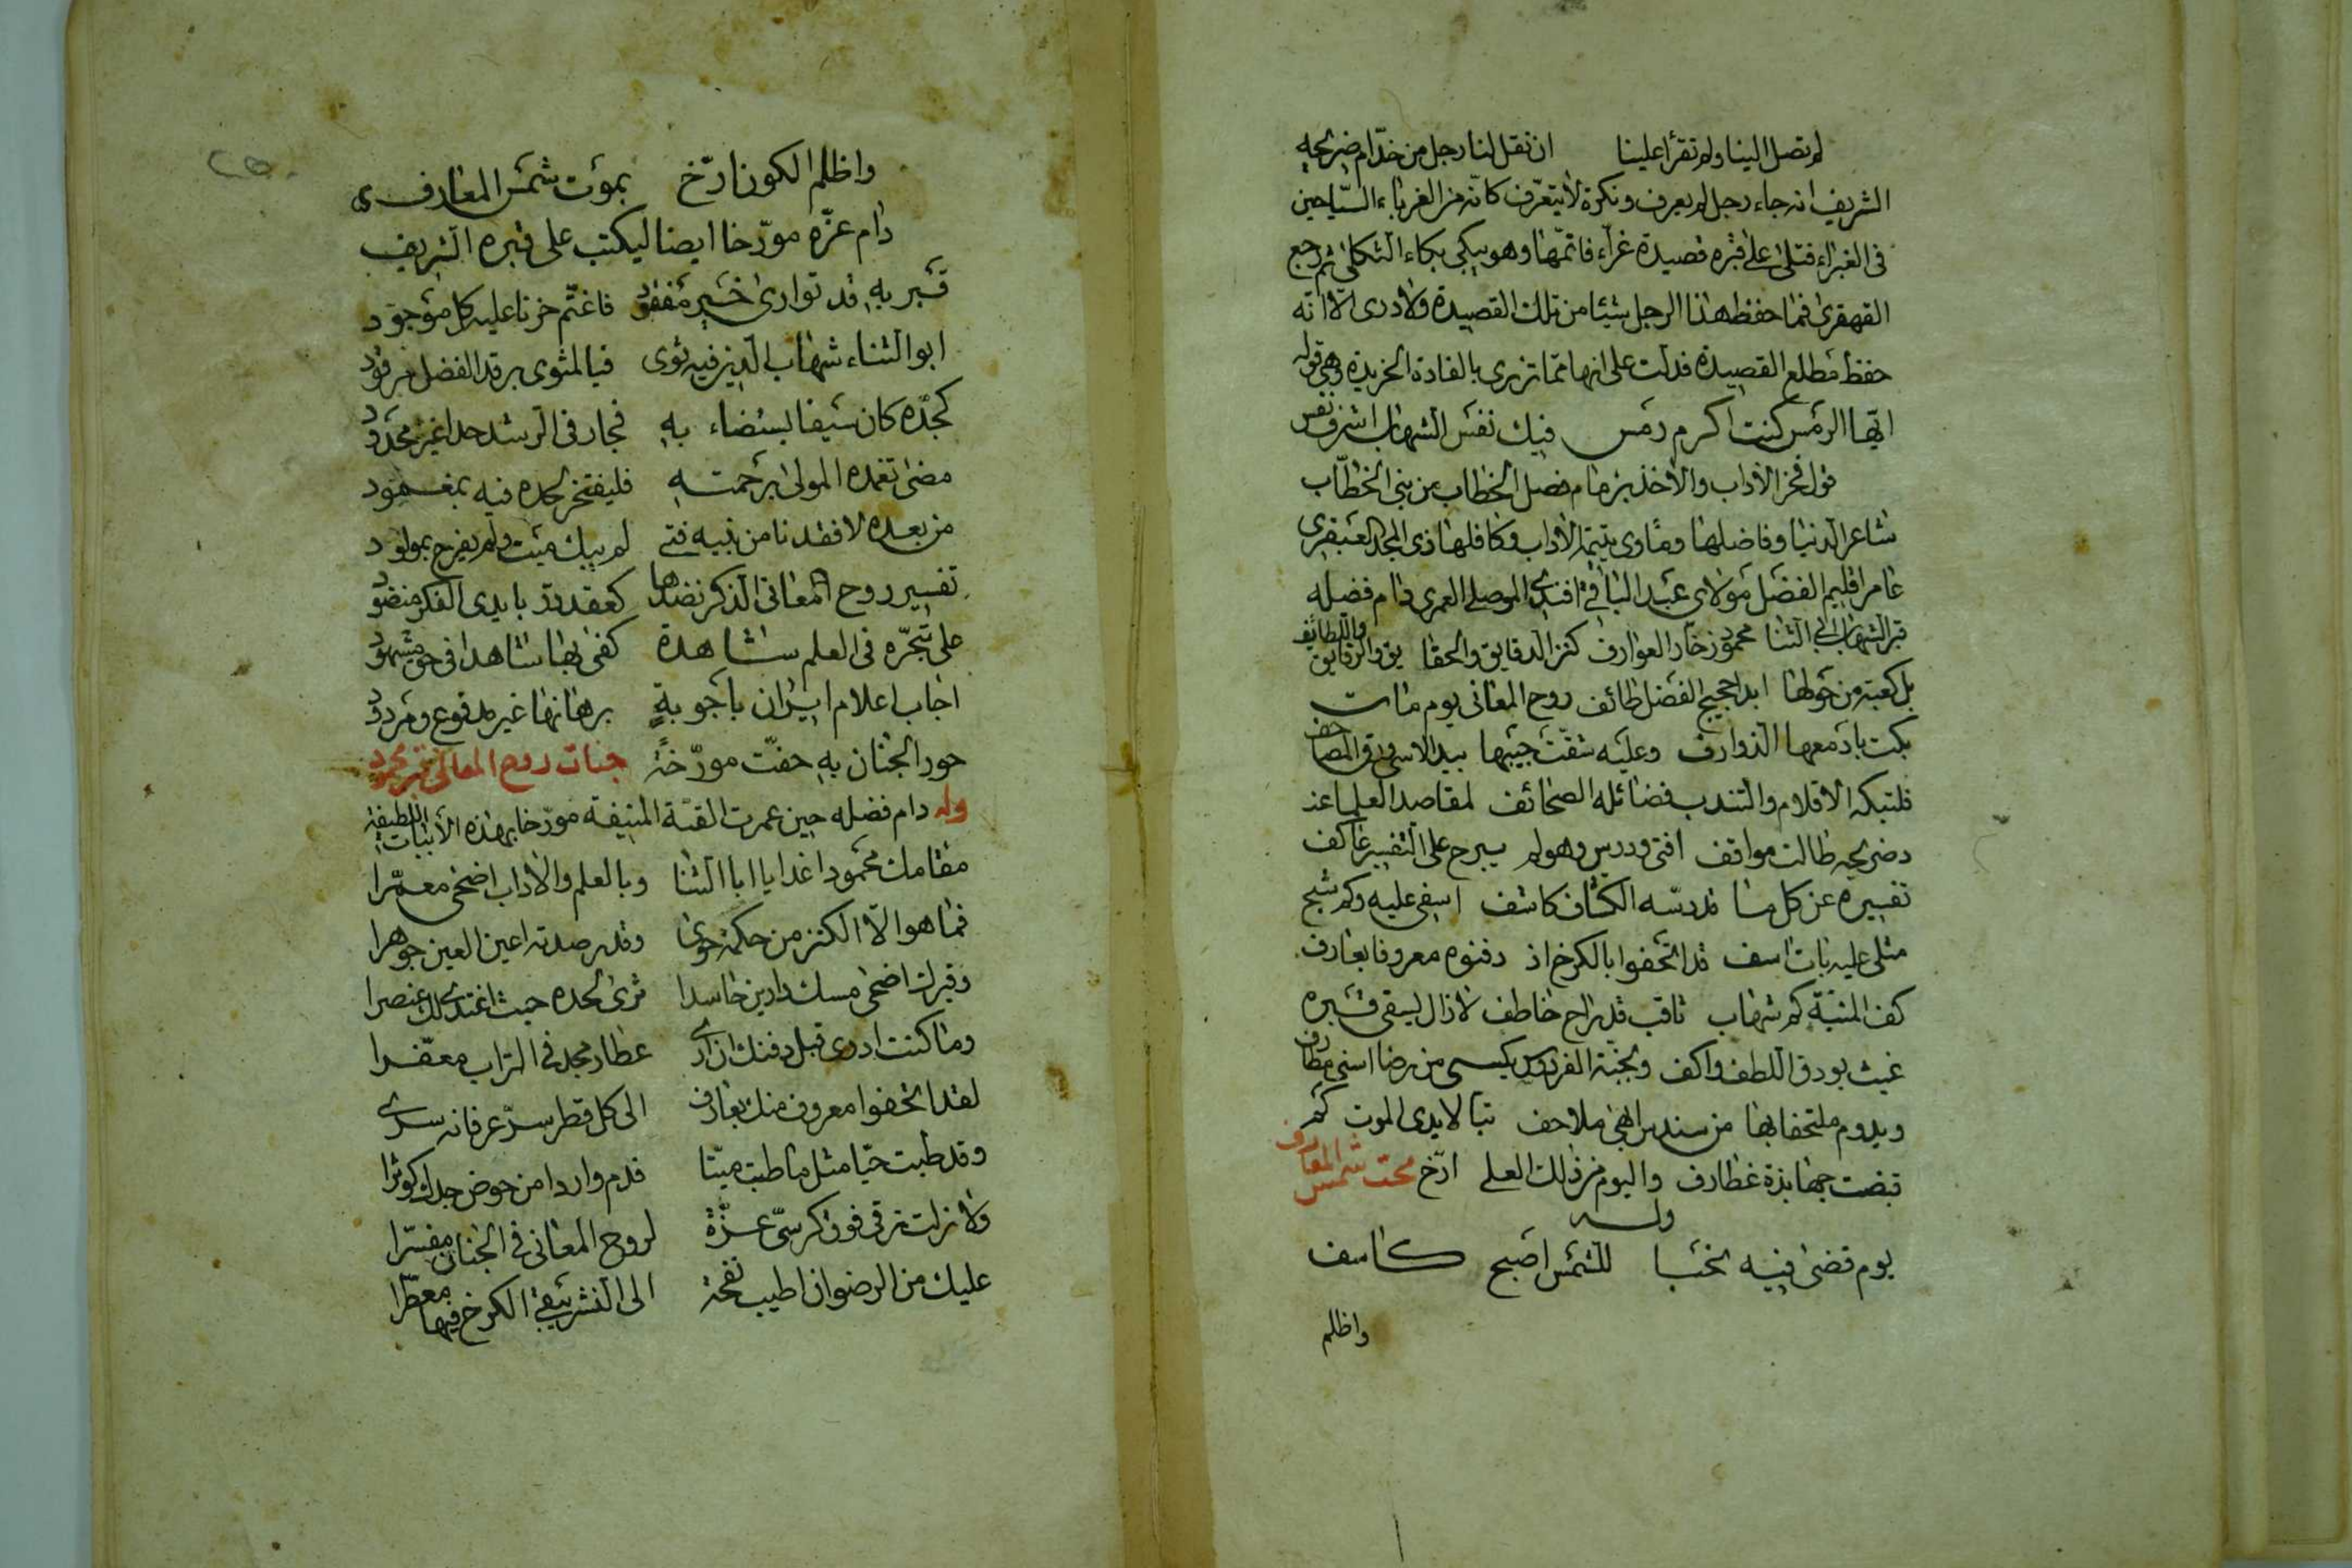 لم تصل الينا ولم تقرأ علينا ان نقل لنا رجل من خدّام ضريحه
الشريف انه جاء رجل لم يعرف ونكرة لا يتعرّف كانّه من الغرباء السيّاحين
فى الغبراء فتلى على قبره قصيدة غرّاء فاتمّها وهو يبكى بكاء الثكلى ثم رجع
القهقرى فما حفظ هذا الرجل شيئا من تلك القصيدة ولا درى الّا انّه
حفظ مطلع القصيدة فدلّت على انها ممّا تزرى بالغادة الخريدة وهى قوله
ايّها الرمس كنت اكرم رمس فيك نفس الشهاب اشرف نفس
قول فخر الآداب والآخذ بزمام فصل الخطاب من بنى الخطّاب
شاعر الدنيا وفاضلها ومأوى يتيمة الآداب وكافلها ذى المجد العبقرى
عامر اقليم الفضل مولاى عبد الباقى افندى الموصلى العمرى دام فضله
قبر الشهاب ابى الثنا محمود زخّار العوارف كنز الدقايق والحقا يق والرقايق واللطائف
بل كعبة من حولها ابدا حجيج الفضل طائف روح المعانى يوم مات
بكت بادمعها الذوارف وعليه شقّت جيبها بيد الاسى ورق المصاحف
فلتبكه الاقلام والتندب فضائله الصحائف لمقاصد العلماء عند
ضريحه طالت مواقف افتى ودرس وهو لم يبرح على التفسير عاكف
تفسيره عن كل ما قد دسّه الكشاف كاشف اسفى عليه وكم شج
مثلى عليه بات اسف قد اتحفوا بالكرخ اذ دفنوه معروفا بعارف
كف المنيّة كم شهاب ثاقب قد راح خاطف لا زال يسقى قبره
غيث بودق اللطف واكف وبجنة الفردوس يكسى من رضا اسنى مطارف
ويدوم ملتحفا بها من سندس ابهى ملاحف تبا لايدى الموت كم
قبضت جهابذة غطارف واليوم من فلك العلى ارّخ محت شمس المعارف
وله
يوم قضى فيه نحبا للشمس اصبح كاسف
واظلم
واظلم الكون ارّخ بموت شمس المعارف
دام عزّه مورّخا ايضا ليكتب على قبره الشريف
قبر به قد توارى خير مفقود فاغتمّ حزنا عليه كل موجود
ابو الثناء شهاب الدين فيه ثوى فيا لمثوى برقد الفضل مرفود
كجدّه كان سيفا يستضاء به فجار فى الرشد حدا غير محدود
مضى تغمده المولى برحمته فليفتخر لحده فيه بمغمود
من بعده لا فقدنا من بنيه فتى لم يبك ميت ولم يفرح بمولود
تفسير روح المعانى الذكر نضدها كعقد درّ بايدى الفكر منضود
على تبحّره فى العلم شاهدة كفى بها شاهدا فى حق مشهود
اجاب اعلام ايران باجوبة برهانها غير مدفوع ومردود
حور الجنان به حفّت مورّخة جنات روح المعانى قبر محمود
وله دام فضله حين عمرت القبّة المنيفة مورّخا بهذه الأبيات اللطيفة
مقامك محمودا غدا يا ابا الثنا وبالعلم والآداب اضحى معمّرا
فما هو الّا الكنز من حكمة حوى وقد رصدته اعين العين جوهرا
وقبرك اضحى مسك دارين حاسدا ثرى لحده حيث اغتدى لك عنصرا
وما كنت ادرى قبل دفنك ان ارى عطارد مجد فى التراب معفّرا
لقد اتحفوا معروف منك بعارف الى كل قطر سرّ عرفانه سرى
وقد طبت حيّا مثل ما طبت ميّتا فدم واردا من حوض جدك كوثرا
ولا زلت ترقى فوق كرسىّ عزّة لروح المعانى فى الجنان مفسّرا
عليك من الرضوان اطيب نفحة الى النشر يبقى الكرخ فيها معطّرا